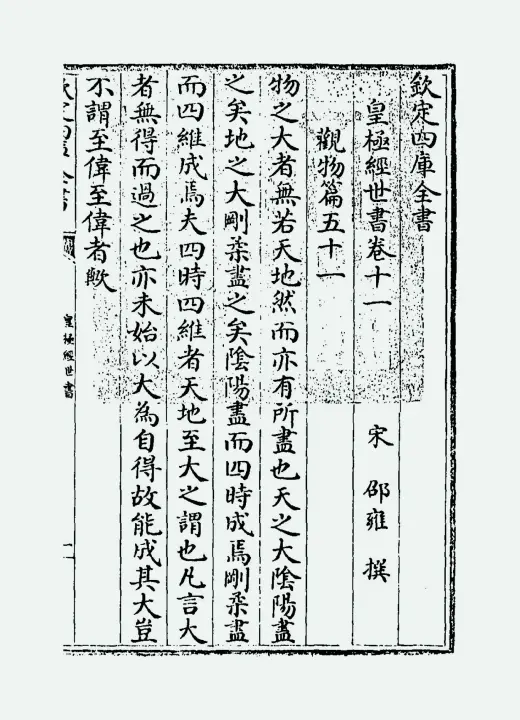 欽定四庫全書
皇極經世書卷十一 宋 邵雍 撰
觀物篇五十一
物之大者無若天地然而亦有所盡也天之大陰陽盡
之矣地之大剛柔盡之矣陰陽盡而四時成焉剛柔盡
而四維成焉夫四時四維者天地至大之謂也凡言大
者無得而過之也亦未始以大為自得故能成其大豈
不謂至偉至偉者歟
皇極經世書